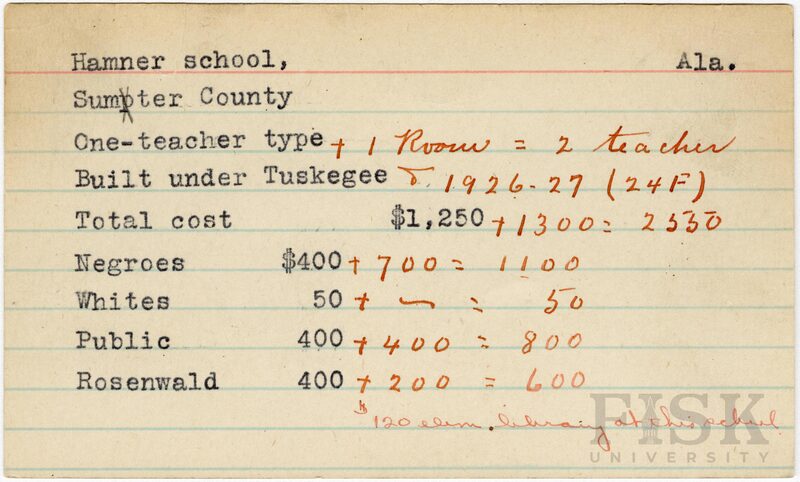 Hamner school, Ala.
Sumpter County
One-teacher type + 1 Room = 2 teacher
Built under Tuskegee & 1926-27 (24F)
Total cost $1,250 + 1300 = 2550
Negroes $400 + 700 = 1100
Whites 50 + — = 50
Public 400 + 400 = 800
Rosenwald 400 + 200 = 600
120 elem. library at this school
FISK
UNIVERSITY